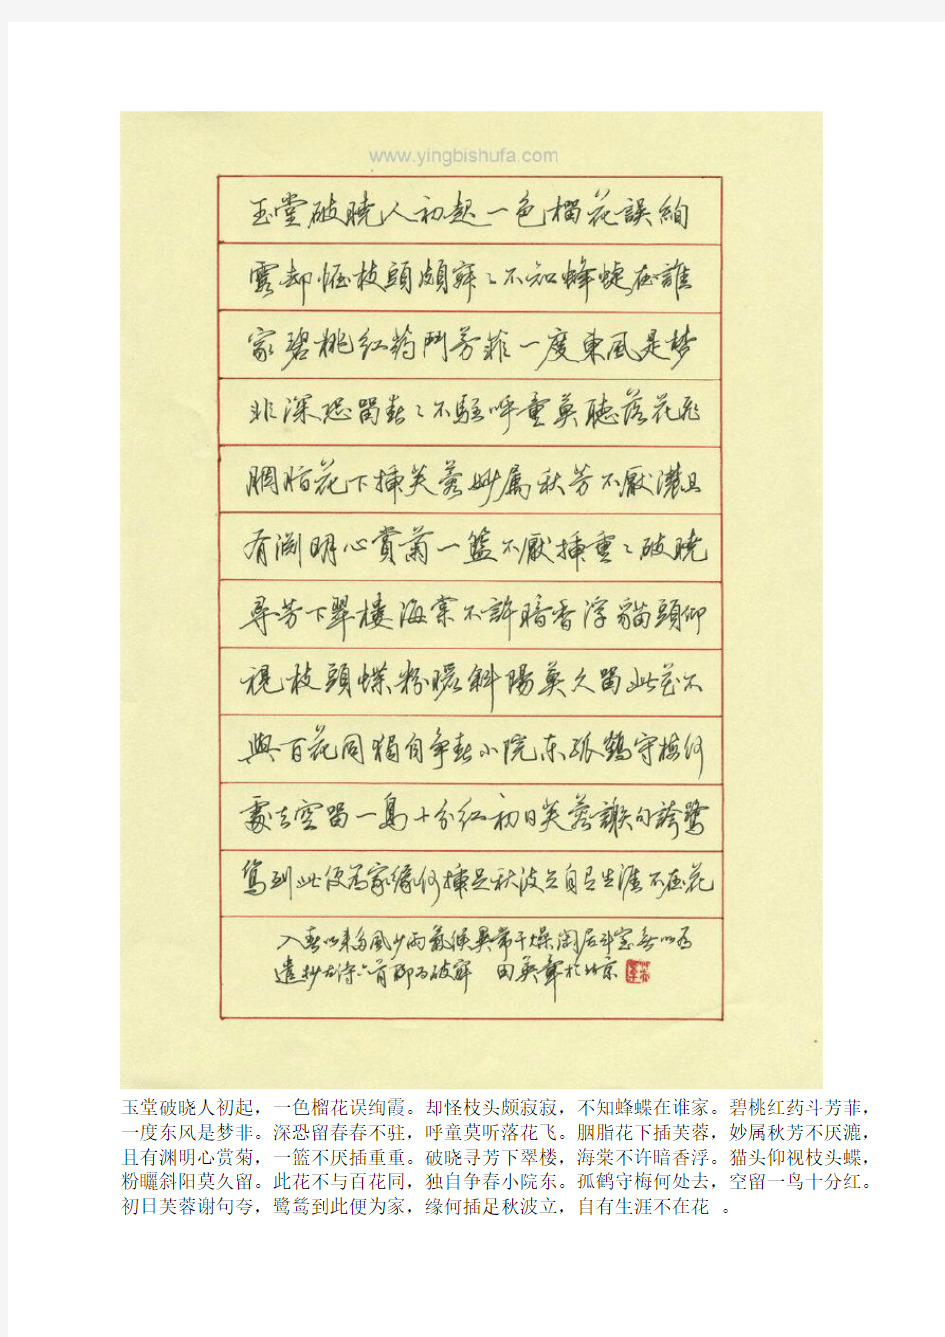 www.yingbishufa.com
玉堂破曉人初起一色榴花誤絢
霞却怪枝頭頗寂〻不知蜂蝶在誰
家碧桃红药鬥芳菲一度東風是梦
非深恐留春〻不駐呼童莫聽落花飛
胭脂花下插芙蓉妙属秋芳不厭濃且
有渊明心賞菊一籃不厭插重〻破曉
尋芳下翠樓海棠不許暗香浮貓頭仰
視枝頭蝶粉曬斜陽莫久留此花不
與百花同獨自爭春小院东孤鶴守梅何
處去空留一鳥十分红初日芙蓉謝句誇鷺
鸶到此便为家缘何插足秋波立自有生涯不在花
入春以来多風少雨氣候異常干燥閑居斗室無以为
遣抄古诗六首聊为破寂 田英章於北京
玉堂破晓人初起，一色榴花误绚霞。却怪枝头颇寂寂，不知蜂蝶在谁家。碧桃红药斗芳菲，
一度东风是梦非。深恐留春春不驻，呼童莫听落花飞。胭脂花下插芙蓉，妙属秋芳不厌漉，
且有渊明心赏菊，一篮不厌插重重。破晓寻芳下翠楼，海棠不许暗香浮。猫头仰视枝头蝶，
粉曬斜阳莫久留。此花不与百花同，独自争春小院东。孤鹤守梅何处去，空留一鸟十分红。
初日芙蓉谢句夸，鹭鸶到此便为家，缘何插足秋波立，自有生涯不在花 。